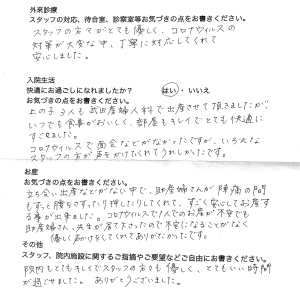 外来診療
スタッフの対応、待合室、診察室等お気づきの点をお書きください。
スタッフの方々がとても優しく、コロナウィルスの
対策が大変な中、丁寧に対応してくれて
安心しました。
入院生活
快適にお過ごしになれましたか？ はい ・ いいえ
お気づきの点をお書きください。
上の子3人も武田産婦人科で出産させて頂きましたが、
いつも食事がおいしく、部屋もキレイでとても快適に
すごせました。
コロナウィルスで面会などがなかったですが、いろんな
スタッフの方が声をかけてくれてうれしかったです。
お産
お気づきの点をお書きください。
立ち会い出産などがない中で、助産婦さんが陣痛の間
もずっと腰をさすったり押したりしてくれて、すごく安心してお産す
る事が出来ました。コロナウィルスで1人でのお産が不安でも
助産婦さん、先生が居て下さったので不安になることがなく
優しく声かけをしてくれてありがたかったです。
その他
スタッフ、院内施設に関するご指摘やご要望などご自由にお書きください。
院内もとてもキレイでスタッフの方々も優しく、とてもいい時間
が過ごせました。ありがとうございました。